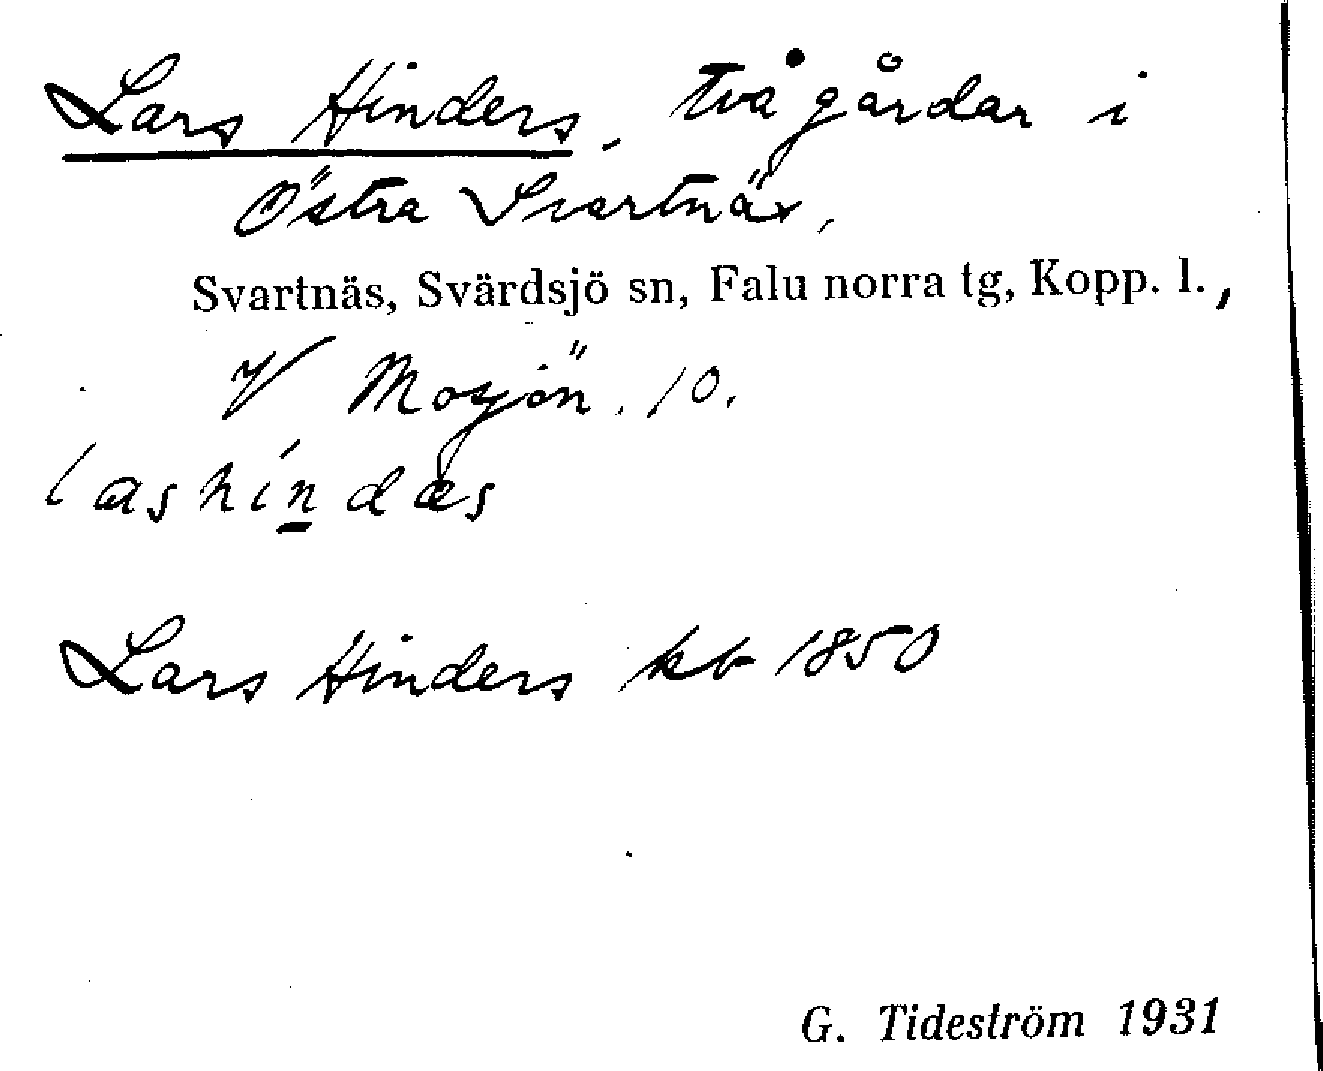 Lars Hinders, två gårdar i
Östra Svartnäs,
Svartnäs, Svärdsjö sn, Falu norra tg, Kopp. l.,
V Mosjön. 10.
lashíndæs
Lars Hinders kb 1850
G. Tideström 1931